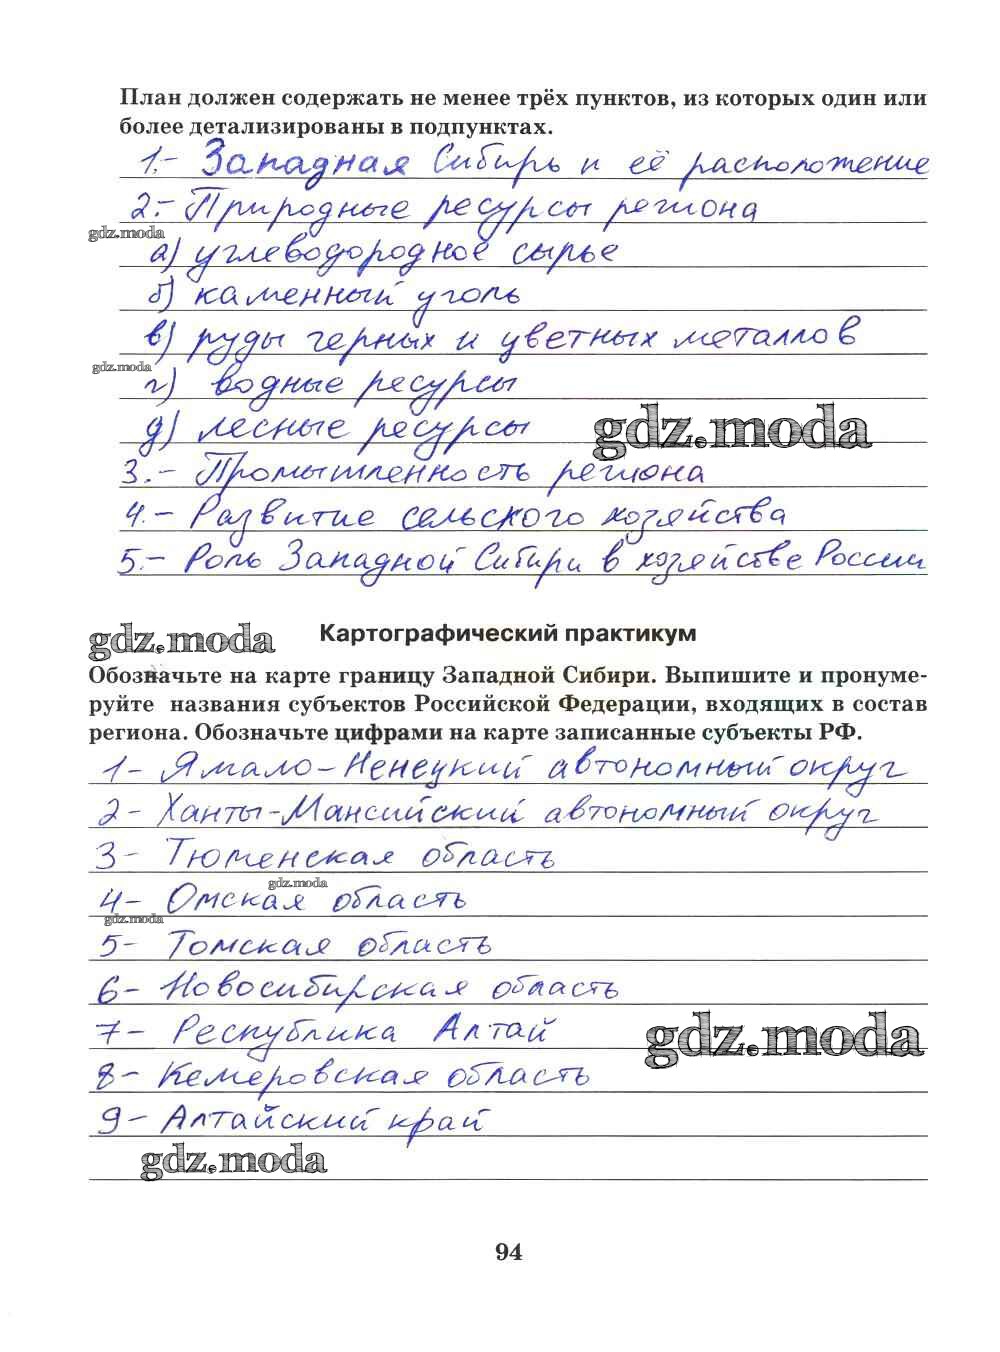 План должен содержать не менее трёх пунктов, из которых один или
более детализированы в подпунктах.
1.- Западная Сибирь и её расположение
2.- Природные ресурсы региона
gdz.moda
а) углеводородное сырье
б) каменный уголь
в) руды черных и цветных металлов
gdz.moda
г) водные ресурсы
д) лесные ресурсы
gdz.moda
3.- Промышленность региона
4.- Развитие сельского хозяйства
5.- Роль Западной Сибири в хозяйстве России
gdz.moda
Картографический практикум
Обозначьте на карте границу Западной Сибири. Выпишите и пронуме-
руйте названия субъектов Российской Федерации, входящих в состав
региона. Обозначьте цифрами на карте записанные субъекты РФ.
1- Ямало-Ненецкий автономный округ
2- Ханты-Мансийский автономный округ
3- Тюменская область
gdz.moda
4- Омская область
gdz.moda
5- Томская область
6- Новосибирская область
7- Республика Алтай
gdz.moda
8- Кемеровская область
9- Алтайский край
gdz.moda
94